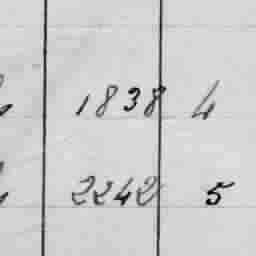 1838 4
2242 5